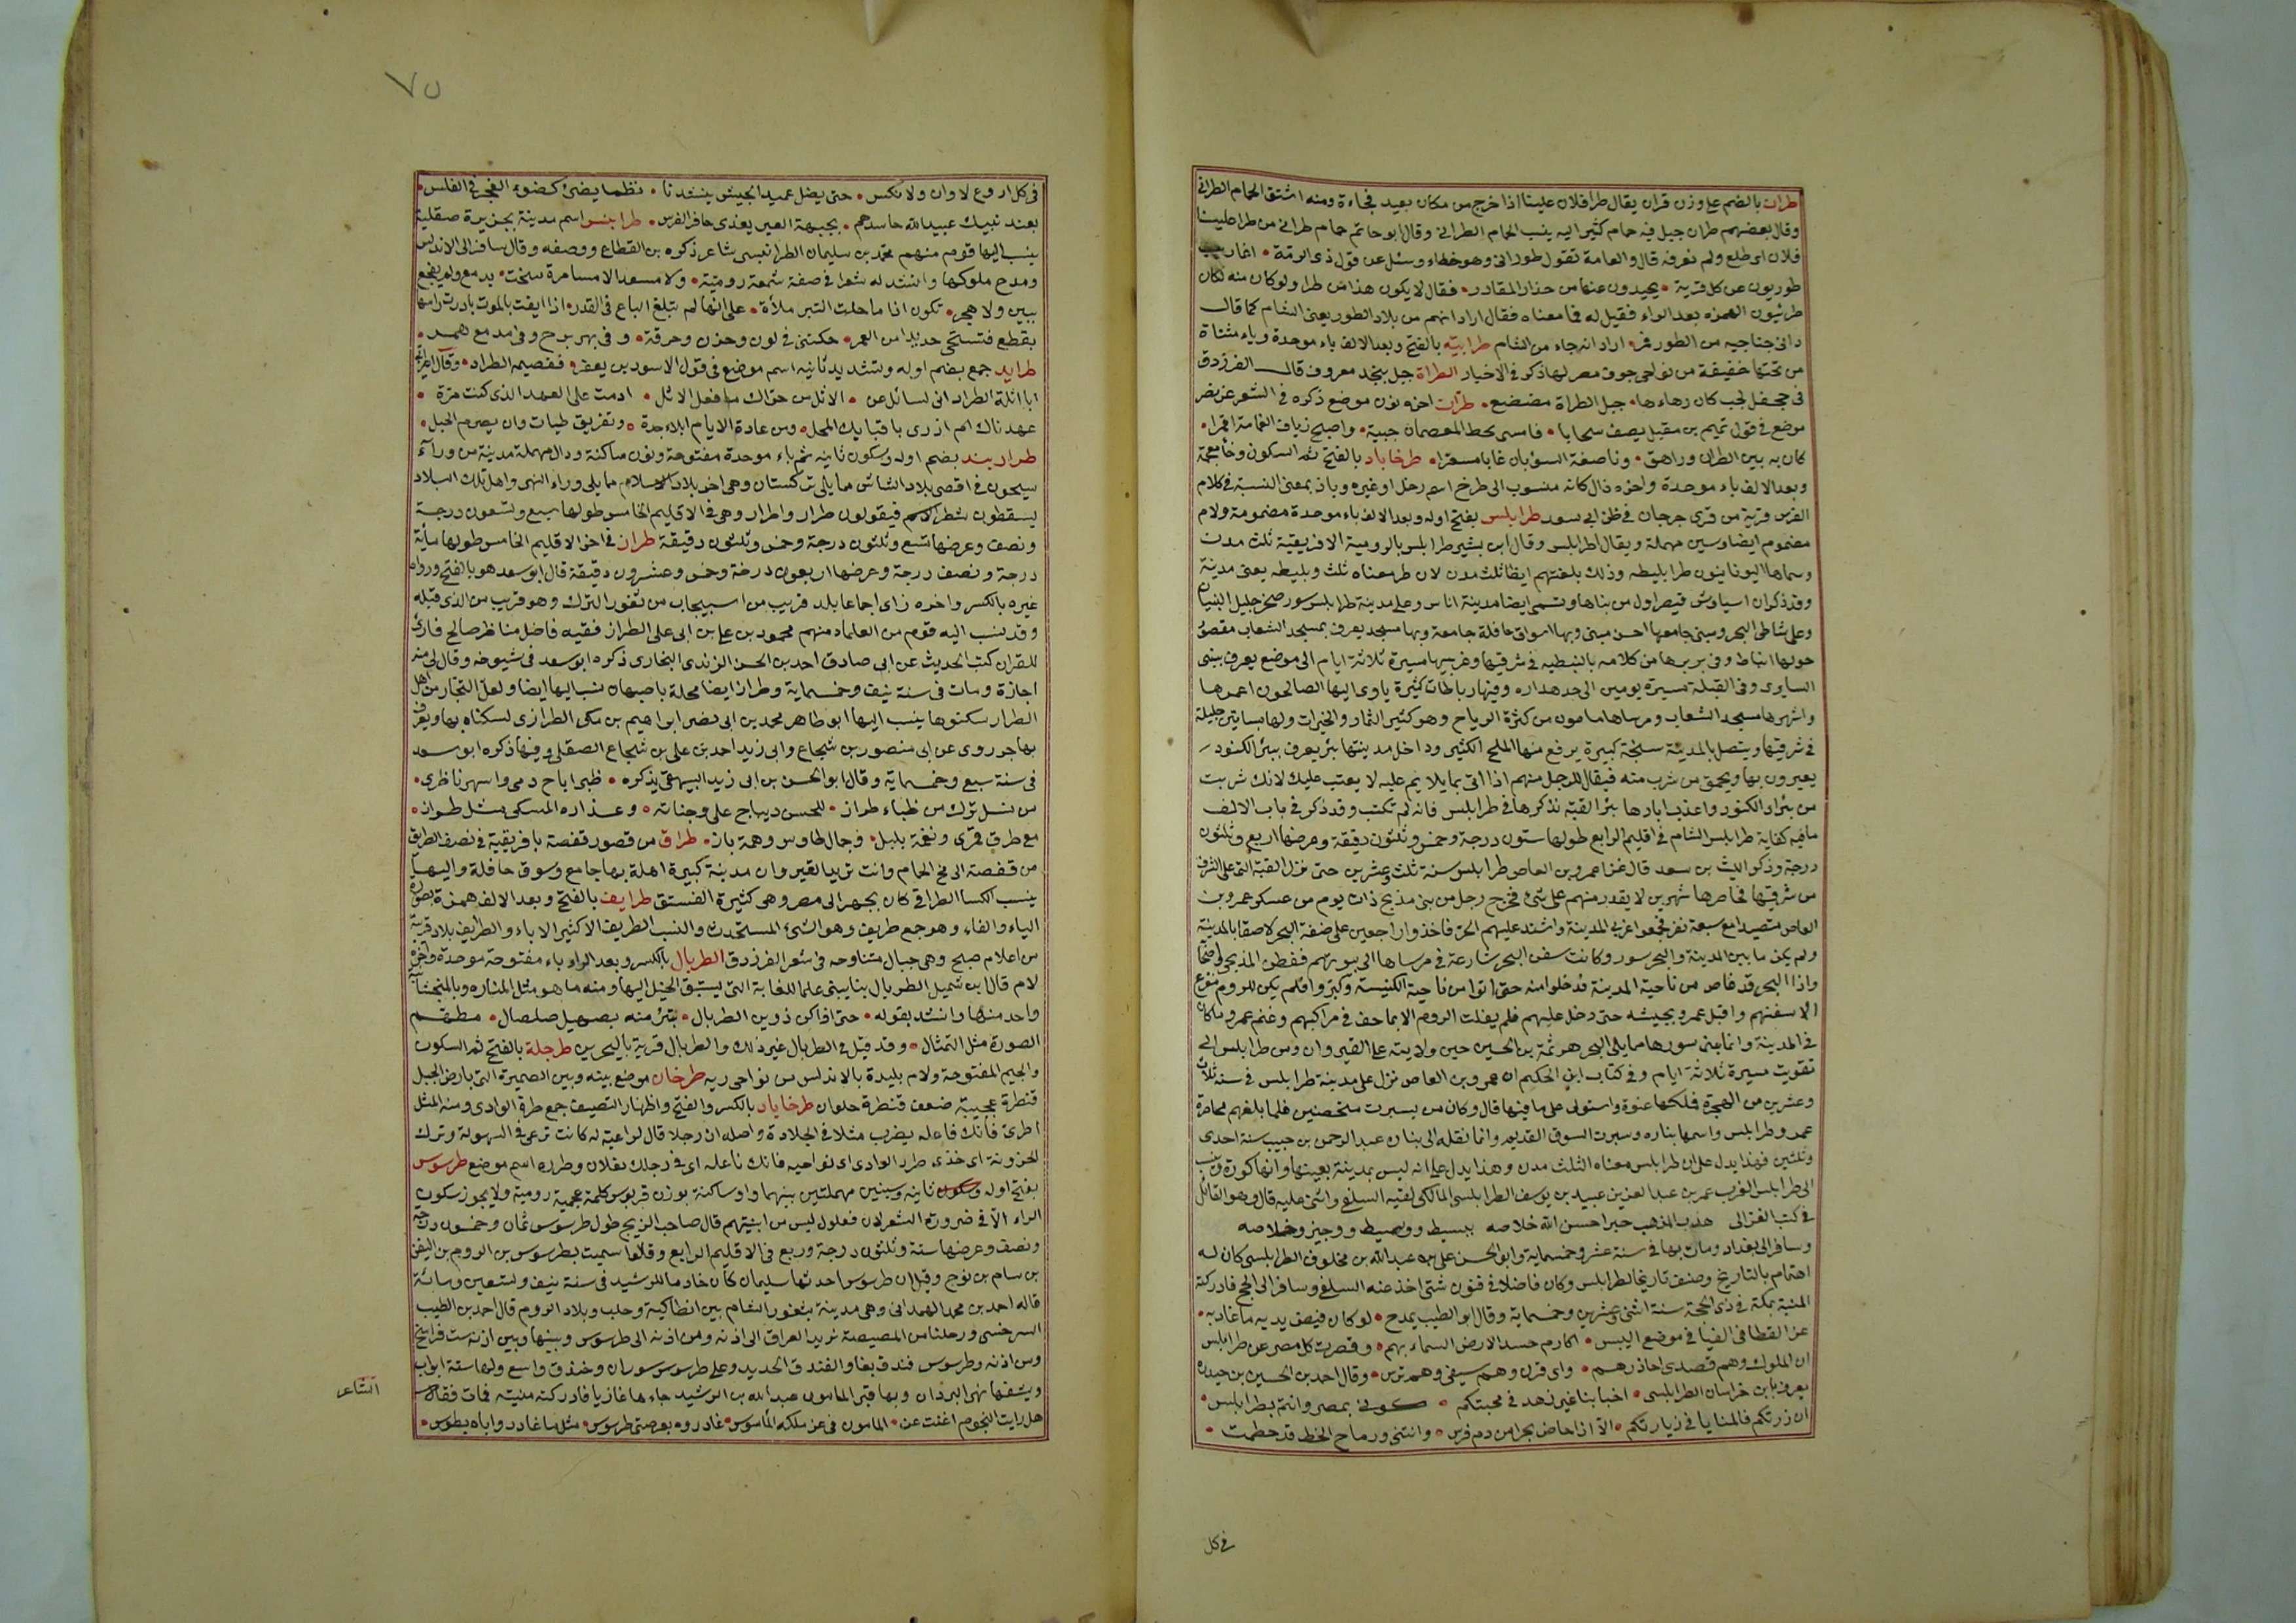 طران بالضم على وزن قران يقال طرا فلان علينا اذا خرج من مكان بعيد فجاءة ومنه اشتق الحمام الطرانى
وقال بعضهم طران جبل فيه حمام كثير اليه ينسب الحمام الطرانى وقال ابو حاتم حمام طرانى من طرا علينا
فلان اى طلع ولم نعرفه قال والعامة تقول طورانى وهو خطاء وسئل عن قول ذى الرمة • اغاريب
طوريون عن كل قرية • يحيدون عنها من حذار المقادر • فقال لا يكون هذا من طرا ولو كان منه لكان
طرئيون الهمزة بعد الراء فقيل له فما معناه فقال اراد انهم من بلاد الطور يعنى الشام كما قال
دانى جناحيه من الطور فمر • اراد انه جاء من الشام طرابية بالفتح وبعد الالف باء موحدة وياء مثناة
من تحتها خفيفة من نواحى جوف مصر لها ذكر فى الاخبار الطراة جبل بنجد معروف قال الفرزدق
فى جحفل لجب كان زهاءها • جبل الطراة مضعضع • طران اخره نون موضع ذكره فى الشعر عن نصر
موضع فى قول تميم بن مقبل يصف سحابا • فامسى يحط المعصمات جبيه • واصبح زياف الغمامة اقمرا •
كان به بين الطراة وراهق • وناصفة السوبان غابا مسعرا • طرخاباد بالفتح ثم السكون وخاء معجمة
وبعد الالف باء موحدة واخره ذال كانه منسوب الى طرخ اسم رجل او غيره وباذ بمعنى النسبة فى كلام
الفرس قرية من قرى جرجان فى ظن ابى سعد طرابلس بفتح اوله وبعد الالف باء موحدة مضمومة ولام
مضموم ايضا وسين مهملة ويقال اطرابلس وقال ابن بشير طرابلس بالرومية الافريقية ثلث مدن
وسماها اليونانيون طرابليطه وذلك بلغتهم ايضا ثلث مدن لان طر معناه ثلث وبليطه يعنى مدينة
وقد ذكر ان اسباوس قيصر اول من بناها وتسمى ايضا مدينة اناس وعلى مدينة طرابلس سور صخر جليل البنيان
وعلى شاطى البحر ومبنى جامعها احسن مبنى وبها اسواق حافلة جامعة وبها مسجد يعرف بمسجد الشعاب مقصود
حولها انباط وفى بربرها من كلامه بالنبطيه فى شرقيها وغربيها مسيرة ثلاثة ايام الى موضع يعرف ببنى
السابرى وفى القبلة مسيرة يومين الى حد هداره وفيها رباطات كثيرة ياوى اليها الصالحون اعمرها
واشهرها مسجد الشعاب ومرساها مامون من كثرة الرياح وهو كثير الثمار والخيرات ولها بساتين جليلة
فى شرقيها ويتصل بالمدينة سبخة كبيرة يرفع منها الملح الكثير وداخل مدينتها بئر يعرف ببئر الكنود
يعيرون بها ويحمق من شرب منه فيقال للرجل منهم اذا اتى بما يلام عليه لا يعتب عليك لانك شربت
من بئر الكنود واعذب ابارها بئر القبة نذكرها فى طرابلس فانه لم تكتب وقد ذكر فى باب الالف
ما فيه كفاية طرابلس الشام فى اقليم الرابع طولها ستون درجة وخمس وثلثون دقيقة وعرضها اربع وثلثون
درجة وذكر الليث بن سعد قال غزا عمرو بن العاص طرابلس سنة ثلث وعشرين حتى نزل القبة التى على الشرف
من شرقيها فحاصرها شهرين لا يقدر منهم على شئ فخرج رجل من بنى مدلج ذات يوم من عسكر عمرو بن
العاص متصيدا مع سبعة نفر فمضوا غربى المدينة واشتد عليهم الحر فاخذوا راجعين على ضفة البحر لاصقا بالمدينة
ولم يكن ما بين المدينة والبحر سور وكانت سفن البحر شارعة فى مرساها الى بيوتهم ففطن المدلجى
واذا البحر قد غاص من ناحية المدينة فدخلوا منه حتى اتوا من ناحية الكنيسة وكبروا فلم يكن للروم مفزع
الا سفنهم واقبل عمرو بجيشه حتى دخل عليهم فلم يفلت الروم الا بما خف فى مراكبهم وغنم عمرو ما كان
فى المدينة وانما بنى سورها مما يلى البحر هرثمة بن الحسين حين ولايته على القيروان ومن طرابلس الى
نفوسة مسيرة ثلاثة ايام وفى كتاب ابن الحكم ان عمرو بن العاص نزل على مدينة طرابلس فى سنة ثلاث
وعشرين من الهجرة فملكها عنوة واستولى على ما فيها قال وكان من بسبرت متحصنين فلما بلغهم محاصرة
عمرو طرابلس واسمها بناره وسبرت السوق القديم وانما نقله الى بناره عبد الرحمن بن حبيب سنة احدى
وثلثين فهذا يدل على ان طرابلس معناه الثلث مدن وهذا يدل على انه ليس بمدينة بعينها وانها كورة وينسب
الى طرابلس الغرب عمر بن عبد العزيز بن عبيد بن يوسف الطرابلسى المالكى لقيه السلفى واثنى عليه قال وهو القائل
فى كتب الغزالى هذب المذهب حبر احسن الله خلاصه ببسيط ووسيط ووجيز وخلاصه
وسافر الى بغداد ومات بها فى سنة عشر وخمسماية وابو الحسن على بن عبد الله بن مخلوف الطرابلسى كان له
اهتمام بالتاريخ وصنف تاريخا لطرابلس وكان فاضلا فى فنون شتى اخذ عنه السلفى وسافر الى الحج فادركته
المنية بمكة فى ذى الحجة سنة اثنى وعشرين وخمسماية وقال ابو الطيب يمدح • لو كان فيض يديه ماء غادية •
عز القطا فى الفيافى موضع اليبس • اكارم حسد الارض السماء بهم • وقصرت كل مصر عن طرابلس
اى الملوك وهم قصدى احاذرهم • واى قرن وهم سيفى وهم ترسى • وقال احمد بن الحسين بن حيدرة
يعرف بابن خراسان الطرابلسى • احبابنا غير زهد فى محبتكم • كونى بمصر وانتم بطرابلس •
ان زرتكم فالمنايا فى زيارتكم • الا اذا خاض بحرا من دم فرس • وانثنى ورماح الخط قد حطمت •
فى كل
٧٥
فى كل اروع لا وان ولا نكس • حتى يضل عميد الجيش ينشدنا • نظما يضئ كضوء الفجر فى الغلس •
بعند نبيك عبيد الله حاسدهم • بجبهة العير يفدى حافر الفرس • طرابنس اسم مدينة بجزيرة صقلية
ينسب اليها قوم منهم محمد بن سليمان الطرابنسى شاعر ذكره بن القطاع ووصفه وقال سافر الى الاندلس
ومدح ملوكها وانشد له شعرا فى صفة شمعة رومية • ولا مسعد الا مسامرة سخت • بدمع ولم يفجع
ببين ولا هجر • تكون اذا ما حلت التبر ملأة • على انها لم تبلغ الباع فى القدر • اذا ايقنت بالموت بادرت راسها
بقطع فتستحى جديدا من العمر • حكتنى فى لون وحزن وحرقة • وفى بهر برح وفى امدمع همر •
طراید جمع بضم اوله وتشديد ثانيه اسم موضع فى قول الاسود بن يعفر • فقصيمة الطراد •
ايا اثلة الطراد انى لسائل عن • الاثل من حراك ما فعل الاثل • ادمت على العهد الذى كنت مرة •
عهدناك ام ازرى باقنابك المحل • ومن عادة الايام ابلاء جدة • وتفريق طيات وان يصرم الحبل •
طراربند بضم اوله وسكون ثانيه ثم باء موحدة مفتوحة ونون ساكنة ودال مهملة مدينة من وراء
سيحون فى اقصى بلاد الشاش مما يلى تركستان وهى اخر بلاد الاسلام مما يلى وراء النهر واهل تلك البلاد
يسقطون شطر الاسم فيقولون طرار واطرار وهى فى الاقليم الخامس طولها سبع وتسعون درجة
ونصف وعرضها تسع وثلثون درجة وخمس وثلثون دقيقة طراز فى اخر الاقليم الخامس طولها مأية
درجة ونصف درجة وعرضها اربعون درجة وخمس وعشرون دقيقة قال ابو سعد هو بالفتح ورواه
غيره بالكسر واخره زاى اجماعا بلد قريب من اسبيجاب من ثغور الترك وهو قريب من الذى قبله
وقد نسب اليه قوم من العلماء منهم محمود بن على بن ابى على الطراز فقيه فاضل مناظر صالح قارئ
للقران كتب الحديث عن ابى صادق احمد بن الحسن الزندى البخارى ذكره ابو سعد فى شيوخه وقال لى منه
اجازة ومات فى سنة نيف وخمسماية وطراز ايضا محلة باصبهان نسب اليها ايضا ولعل التجار من اهل
الطراز سكنوها ينسب اليها ابو طاهر محمد بن ابى نصر ابراهيم بن مكى الطرازى لسكناه بها ويعرف
بهاجر روى عن ابى منصور بن شجاع وابى زيد احمد بن على بن شجاع الصقلى وفيها ذكره ابو سعد
فى سنة سبع وخمسماية وقال ابو الحسن بن ابى زيد البيهقى يذكره • ظبى اباح دمى واسهر ناظرى •
من نسل ترك من ظباء طراز • للحسن ديباج على وجناته • وعذاره المسكى مثل طراز •
مع طرف قمرى ونغمة بلبل • وجمال طاوس وهمة باز • طراق من قصور قفصة بافريقية فى نصف الطريق
من قفصة الى فج الحمام وانت تريد القيروان مدينة كبيرة اهلة بها جامع وسوق حافلة واليها
ينسب الكسا الطراقى كان يجهز الى مصر وهو كثيرة الفستق طرايف بالفتح وبعد الالف همزة بصورة
الياء والفاء وهو جمع طريف وهو الشئ المستحدث والنسب الطريف الاكثير الاباء والطرايف بلاد قريبة
من اعلام صبح وهى جبال متناوحه فى شعر الفرزدق الطربال بالكسر وبعد الراء باء مفتوحة موحدة واخره
لام قال ابن شميل الطربال بنا يبنى علما للغاية التى يستبق الخيل اليها ومنه ما هو مثل المناره وبالمنجشانية
واحد منها وانشد بقوله • حتى اذا كن ذوين الطربال • بشر منه بصهيل صلصال • مطهم
الصورة مثل التمثال • وقد قيل فى الطربال غير ذلك والطربال قرية بالبحرين طرجلة بالفتح ثم السكون
والجيم المفتوحة ولام بليدة بالاندلس من نواحى ريه طرخان موضع بينه وبين الصميرة التى بارض الجبل
قنطرة عجيبة ضعف قنطرة حلوان طرخاباد بالكسر والفتح واظهار التضعيف جمع طرة الوادى ومنه المثل
اطرى فانك فاعله يضرب مثلا فى الجلادة واصله ان رجلا قال لراعية له كانت ترعى فى السهولة وترك
الحزونة اى خذى طرر الوادى اى نواحيه فانك ناعله اى فى رجلك نعلان وطرره اسم موضع طرسوس
بفتح اوله وسكون ثانيه وسينين مهملتين بينهما واو ساكنة بوزن قربوس كلمة عجمية رومية ولا يجوز سكون
الراء الا فى ضرورة الشعر لان فعلول ليس من ابنيتهم قال صاحب الزيج طول طرسوس ثمان وخمسون درجة
ونصف وعرضها ستة وثلثون درجة وربع فى الاقليم الرابع وقالوا سميت بطرسوس بن الروم بن اليفز
بن سام بن نوح وقيل ان طرسوس احدثها سليمان كان خادما للرشيد فى سنة نيف وتسعين ومائة
قاله احمد بن محمد الهمدانى وهى مدينة بثغور الشام بين انطاكية وحلب وبلاد الروم قال احمد بن الطيب
السرخسى ورحلنا من المصيصة نريد العراق الى اذنة ومن اذنة الى طرسوس وبينها وبين اذنة ست فراسخ
وبين اذنة وطرسوس فندق بغا والفندق الجديد وعلى طرسوس سوران وخندق واسع ولها ستة ابواب
ويشقها نهر البردان وبها قبر المامون عبد الله بن الرشيد جاءها غازيا فادركته منيته فمات فقال
الشاعر
هل رايت النجوم اغنت عن • المامون فى عز ملكه المأسوس • غادروه بعرصتى طرسوس • مثل ما غادروا اباه بطوس •